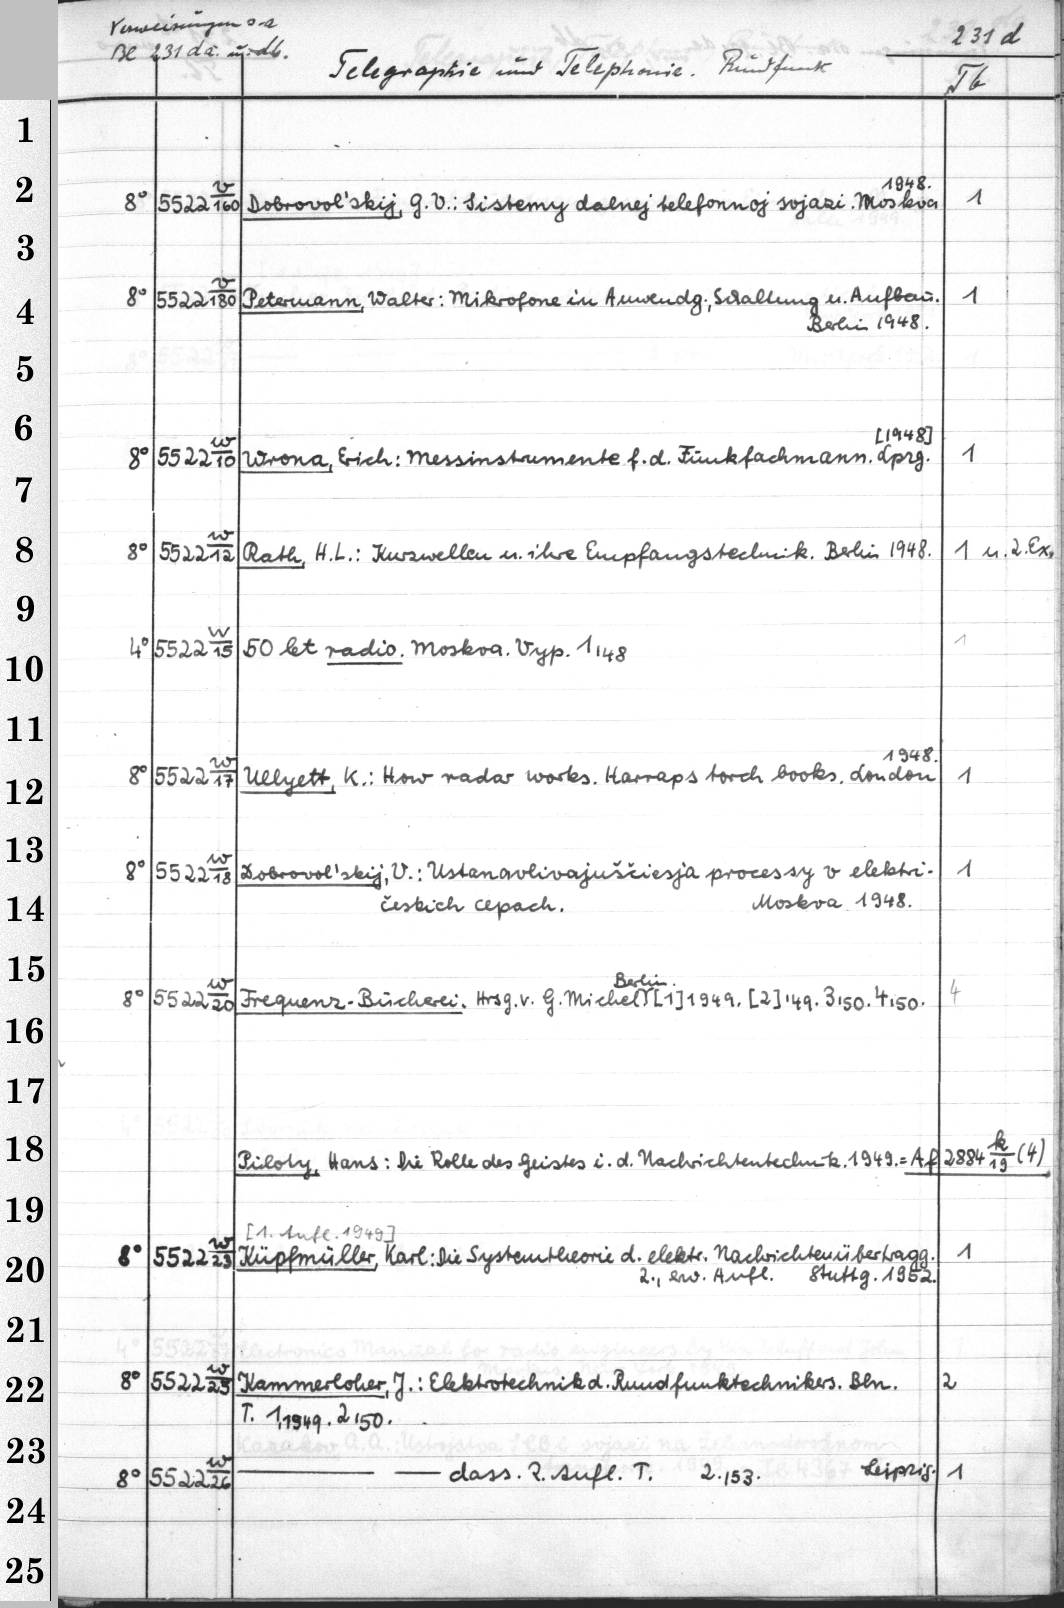 Verweisungen s. a.
Bl 231 da. u. db.
231 d
Telegraphie und Telephonie. Rundfunk
Tb
1
2
1948.
8° 5522 v/160 Dobrovol'skij, G.V.: Sistemy dalnej telefonnoj svjazi. Moskva 1
3
8° 5522 v/180 Petermann, Walter: Mikrofone in Anwendg., Schaltung u. Aufbau. 1
4
Berlin 1948.
5
6
[1948]
8° 5522 w/10 Wrona, Erich: Messinstrumente f. d. Funkfachmann. Lpzg. 1
7
8
8° 5522 w/12 Rath, H.L.: Kurzwellen u. ihre Empfangstechnik. Berlin 1948. 1 u. 2. Ex.
9
4° 5522 w/15 50 let radio. Moskva. Vyp. 1,148 1
10
11
1948.
8° 5522 w/17 Ullyett, K.: How radar works. Harraps torch books. London 1
12
13
8° 5522 w/18 Dobrovol'skij, V.: Ustanavlivajuščiesja processy v elektri- 1
14
českich cepach. Moskva 1948.
15
Berlin.
8° 5522 w/20 Frequenz-Bücherei. Hrsg. v. G. Michel [1] 1949. [2] '49. 3,50. 4,50. 4
16
17
18
Piloty, Hans: Die Rolle des Geistes i. d. Nachrichtentechnik. 1949. = Af 2884 k/19 (4)
19
[1. Aufl. 1949]
8° 5522 w/23 Küpfmüller, Karl: Die Systemtheorie d. elektr. Nachrichtenübertragg. 1
20
2., erw. Aufl. Stuttg. 1952.
21
22
8° 5522 w/25 Kammerloher, J.: Elektrotechnik d. Rundfunktechnikers. Bln. 2
T. 1,1949. 2,50.
23
8° 5522 w/26 — — dass. 2. Aufl. T. 2.,153. Leipzig. 1
24
25